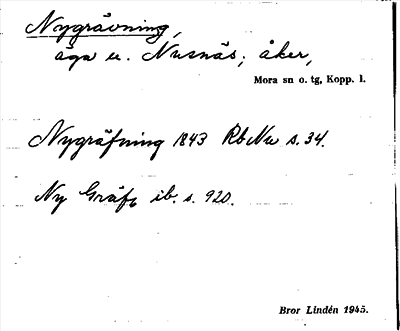 Nygrävning,
äga u. Nusnäs; åker,
Mora sn o. tg, Kopp. l.
Nygräfning 1843 RbNu s. 34.
Ny Gräfn ib. s. 920.
Bror Lindén 1945.